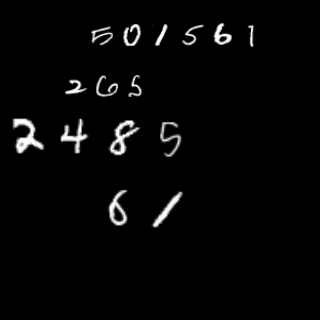 501561
265
2485
61